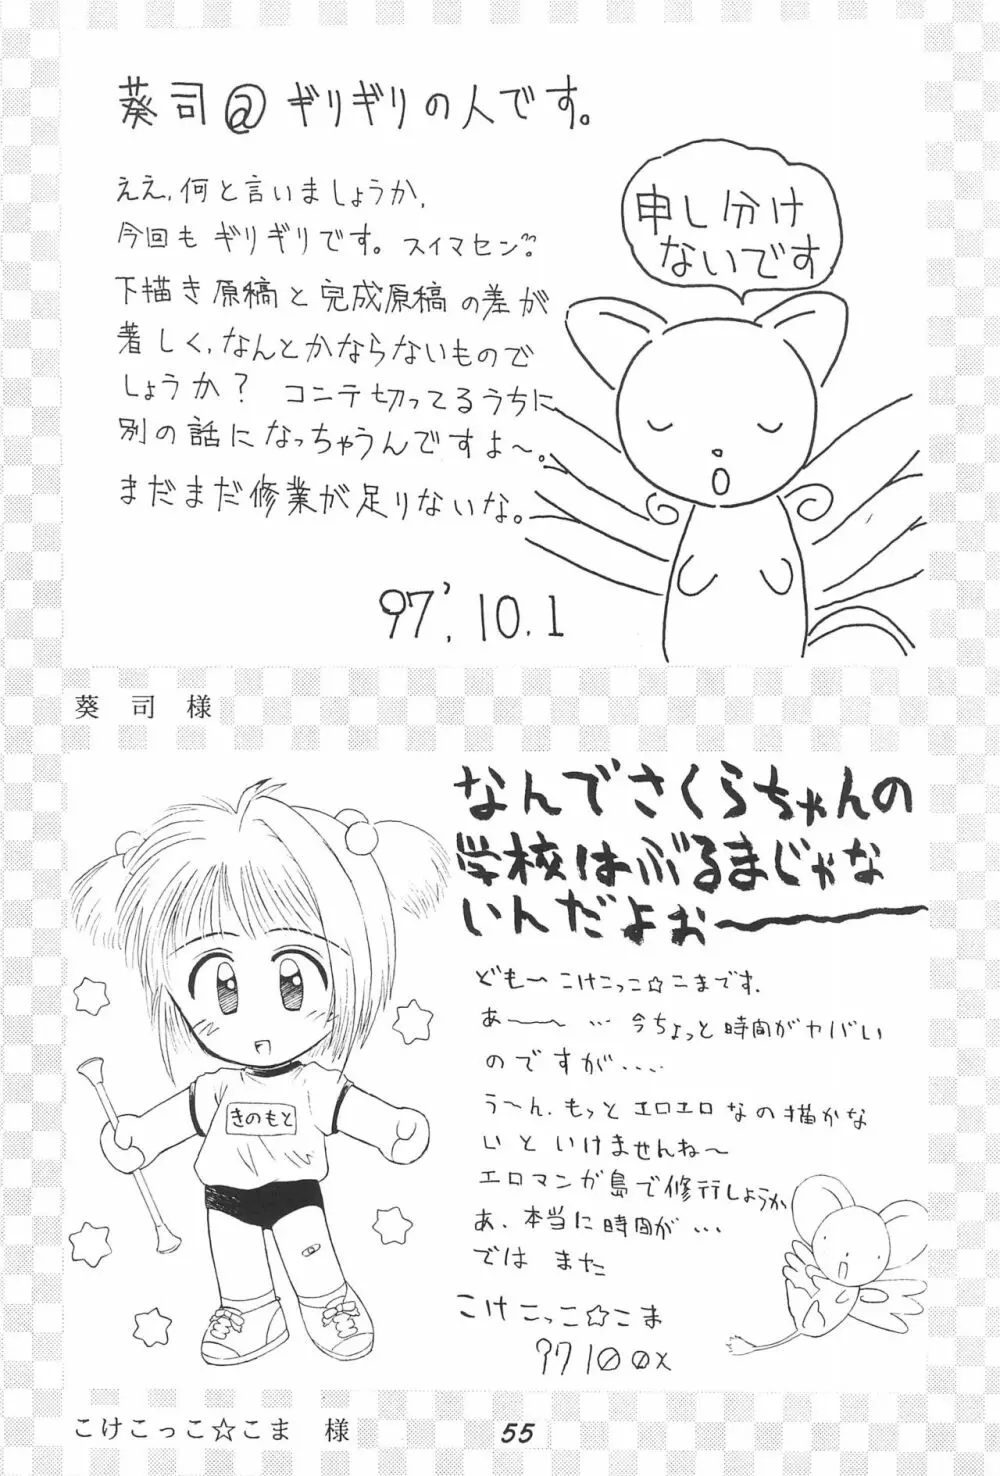 葵司@ギリギリの人です。
ええ、何と言いましょうか、
今回も ギリギリです。スイマセン
下描き原稿と完成原稿の差が
著しく、なんとかならないもので
しょうか? コンテ切ってるうちに
別の話になっちゃうんですよ〜。
まだまだ修業が足りないな。
97'.10.1
申し分け
ないです
葵 司 様
なんでさくらちゃんの
学校はぶるまじゃな
いんだよぉ〜
ども〜 こけこっこ☆こまです.
あ〜 … 今ちょっと時間がヤバい
のですが....
う〜ん.もっとエロエロなの描かな
いといけませんね〜
エロマンガ島で修行しようか
あ、本当に時間が…
では また
こけこっこ☆こま
97100x
きのもと
こけこっこ☆こま 様
55